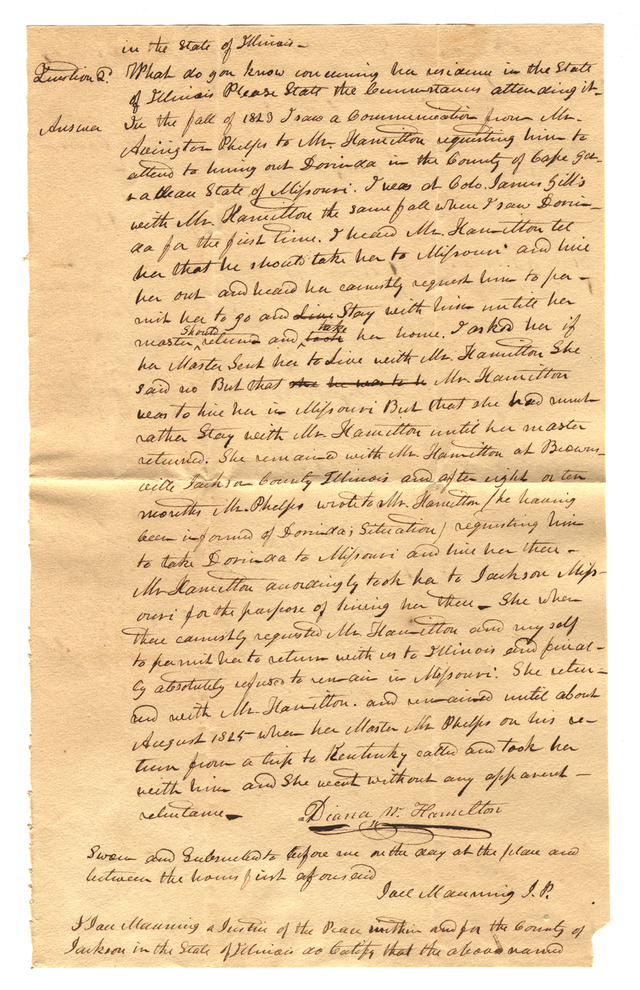 in the State of Illinois –
Question 2d What do you know concerning her residence in the State
of Illinois Please State the Circumstances attending it –
Answer In the fall of 1823 I saw a Communication from Mr.
Avington Phelps to Mr. Hamilton requesting him to
attend to hiring out Dorinda in the County of Cape Gir-
ardeau State of Missouri. I was at Colo. James Gill's
with Mr. Hamilton the same fall when I saw Dorin-
da for the first time. I heard Mr. Hamilton tel
her that he should take her to Missouri and hire
her out and heard her earnestly request him to per-
mit her to go and Live Stay with him untill her
master Should return and took take her home. I asked her if
her Master Sent her to Live with Mr. Hamilton She
said no But that she he was to h Mr. Hamilton
was to hire her in Missouri But that she had much
rather Stay with Mr. Hamilton until her master
returned. She remained with Mr. Hamilton at Browns-
ville Jackson County Illinois and after eight or ten
months Mr. Phelps wrote to Mr. Hamilton (he having
been informed of Dorinda's Situation) requesting him
to take Dorinda to Missouri and hire her there –
Mr Hamilton acordingly took her to Jackson Miss-
ouri for the purpose of hireing her there – She when
there earnestly requested Mr. Hamilton and my self
to permit her to return with us to Illinois and final-
ly absolutely refused to remain in Missouri. She retur-
ned with Mr. Hamilton. and remained until about
August 1825 when her Master Mr. Phelps on his re-
turn from a trip to Kentucky called and took her
with him and She went without any apparent –
reluctance –
Diana W. Hamilton
Sworn and Subscribed to before me on the day at the place and
between the hours first aforesaid
Joel Manning J.P.
I Joel Manning a Justice of the Peace within and for the County of
Jackson in the State of Illinois do Certify that the above named